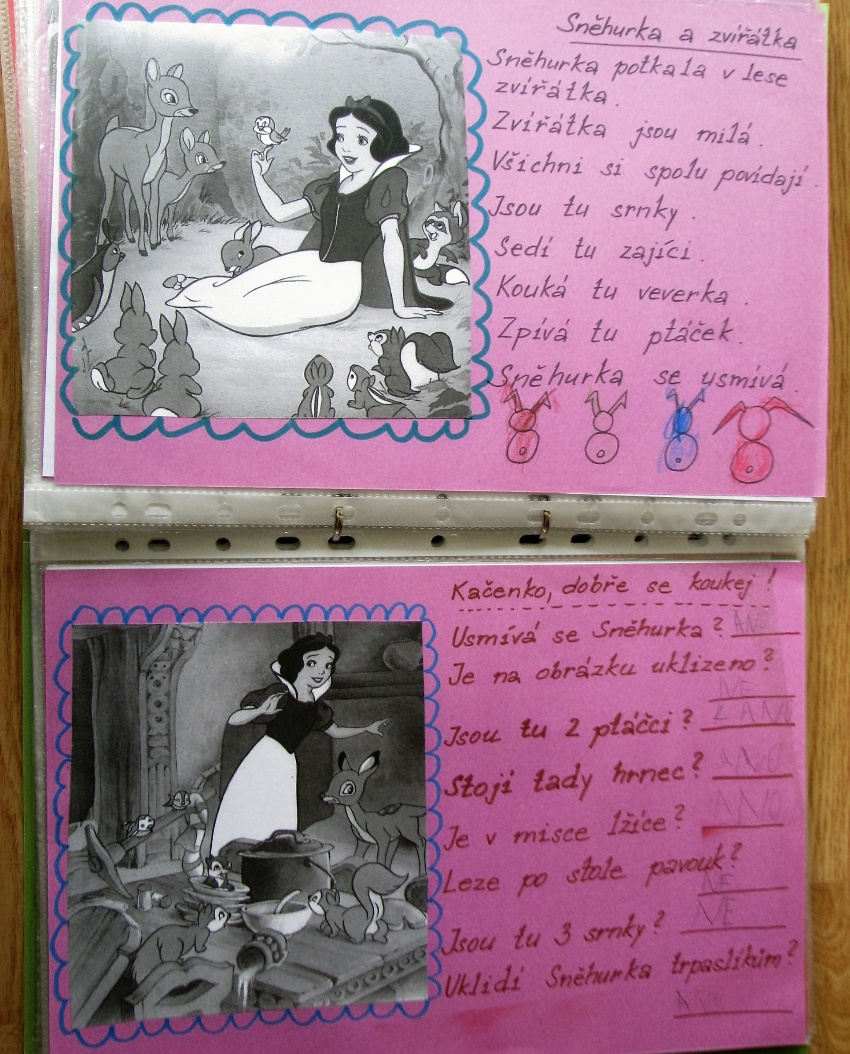 Sněhurka a zvířátka
Sněhurka potkala v lese
zvířátka.
Zvířátka jsou milá.
Všichni si spolu povídají.
Jsou tu srnky.
Sedí tu zajíci.
Kouká tu veverka.
Zpívá tu ptáček.
Sněhurka se usmívá.
Kačenko, dobře se koukej!
Usmívá se Sněhurka? ANO
Je na obrázku uklizeno?
NE
Jsou tu 2 ptáčci? 2 ANO
Stojí tady hrnec? ANO
Je v misce lžíce? ANO
Leze po stole pavouk?
NE
Jsou tu 3 srnky? NE
Uklidí Sněhurka trpaslíkům?